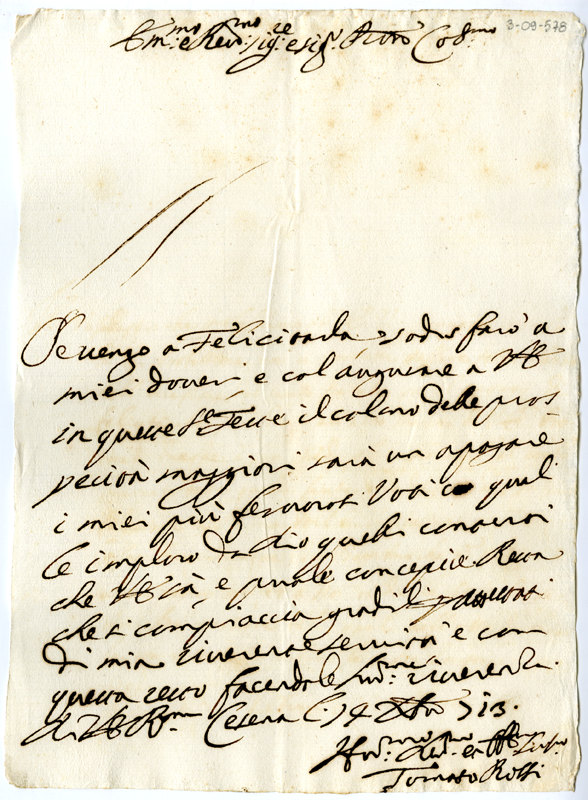 3-09-578
Em.mo e Rev.mo Sig.re e Sig.r Pr̄on Col.mo
Se vengo a Felicitarla, sodisfarò a
miei doveri e col augurare a VE
in queste S.te Feste il colmo delle pros-
perità maggiori sarà un apagare
i miei più fervorosi Voti co quali
le imploro da Dio quelli contenti
che VE sà, e puole concepire Resta
che si compiaccia gradir
di mia riverente servitù e con
questa resto facendole riverenza
di VE R.ma Cesena li 14 Xbre 713.
Tomaso Rossi